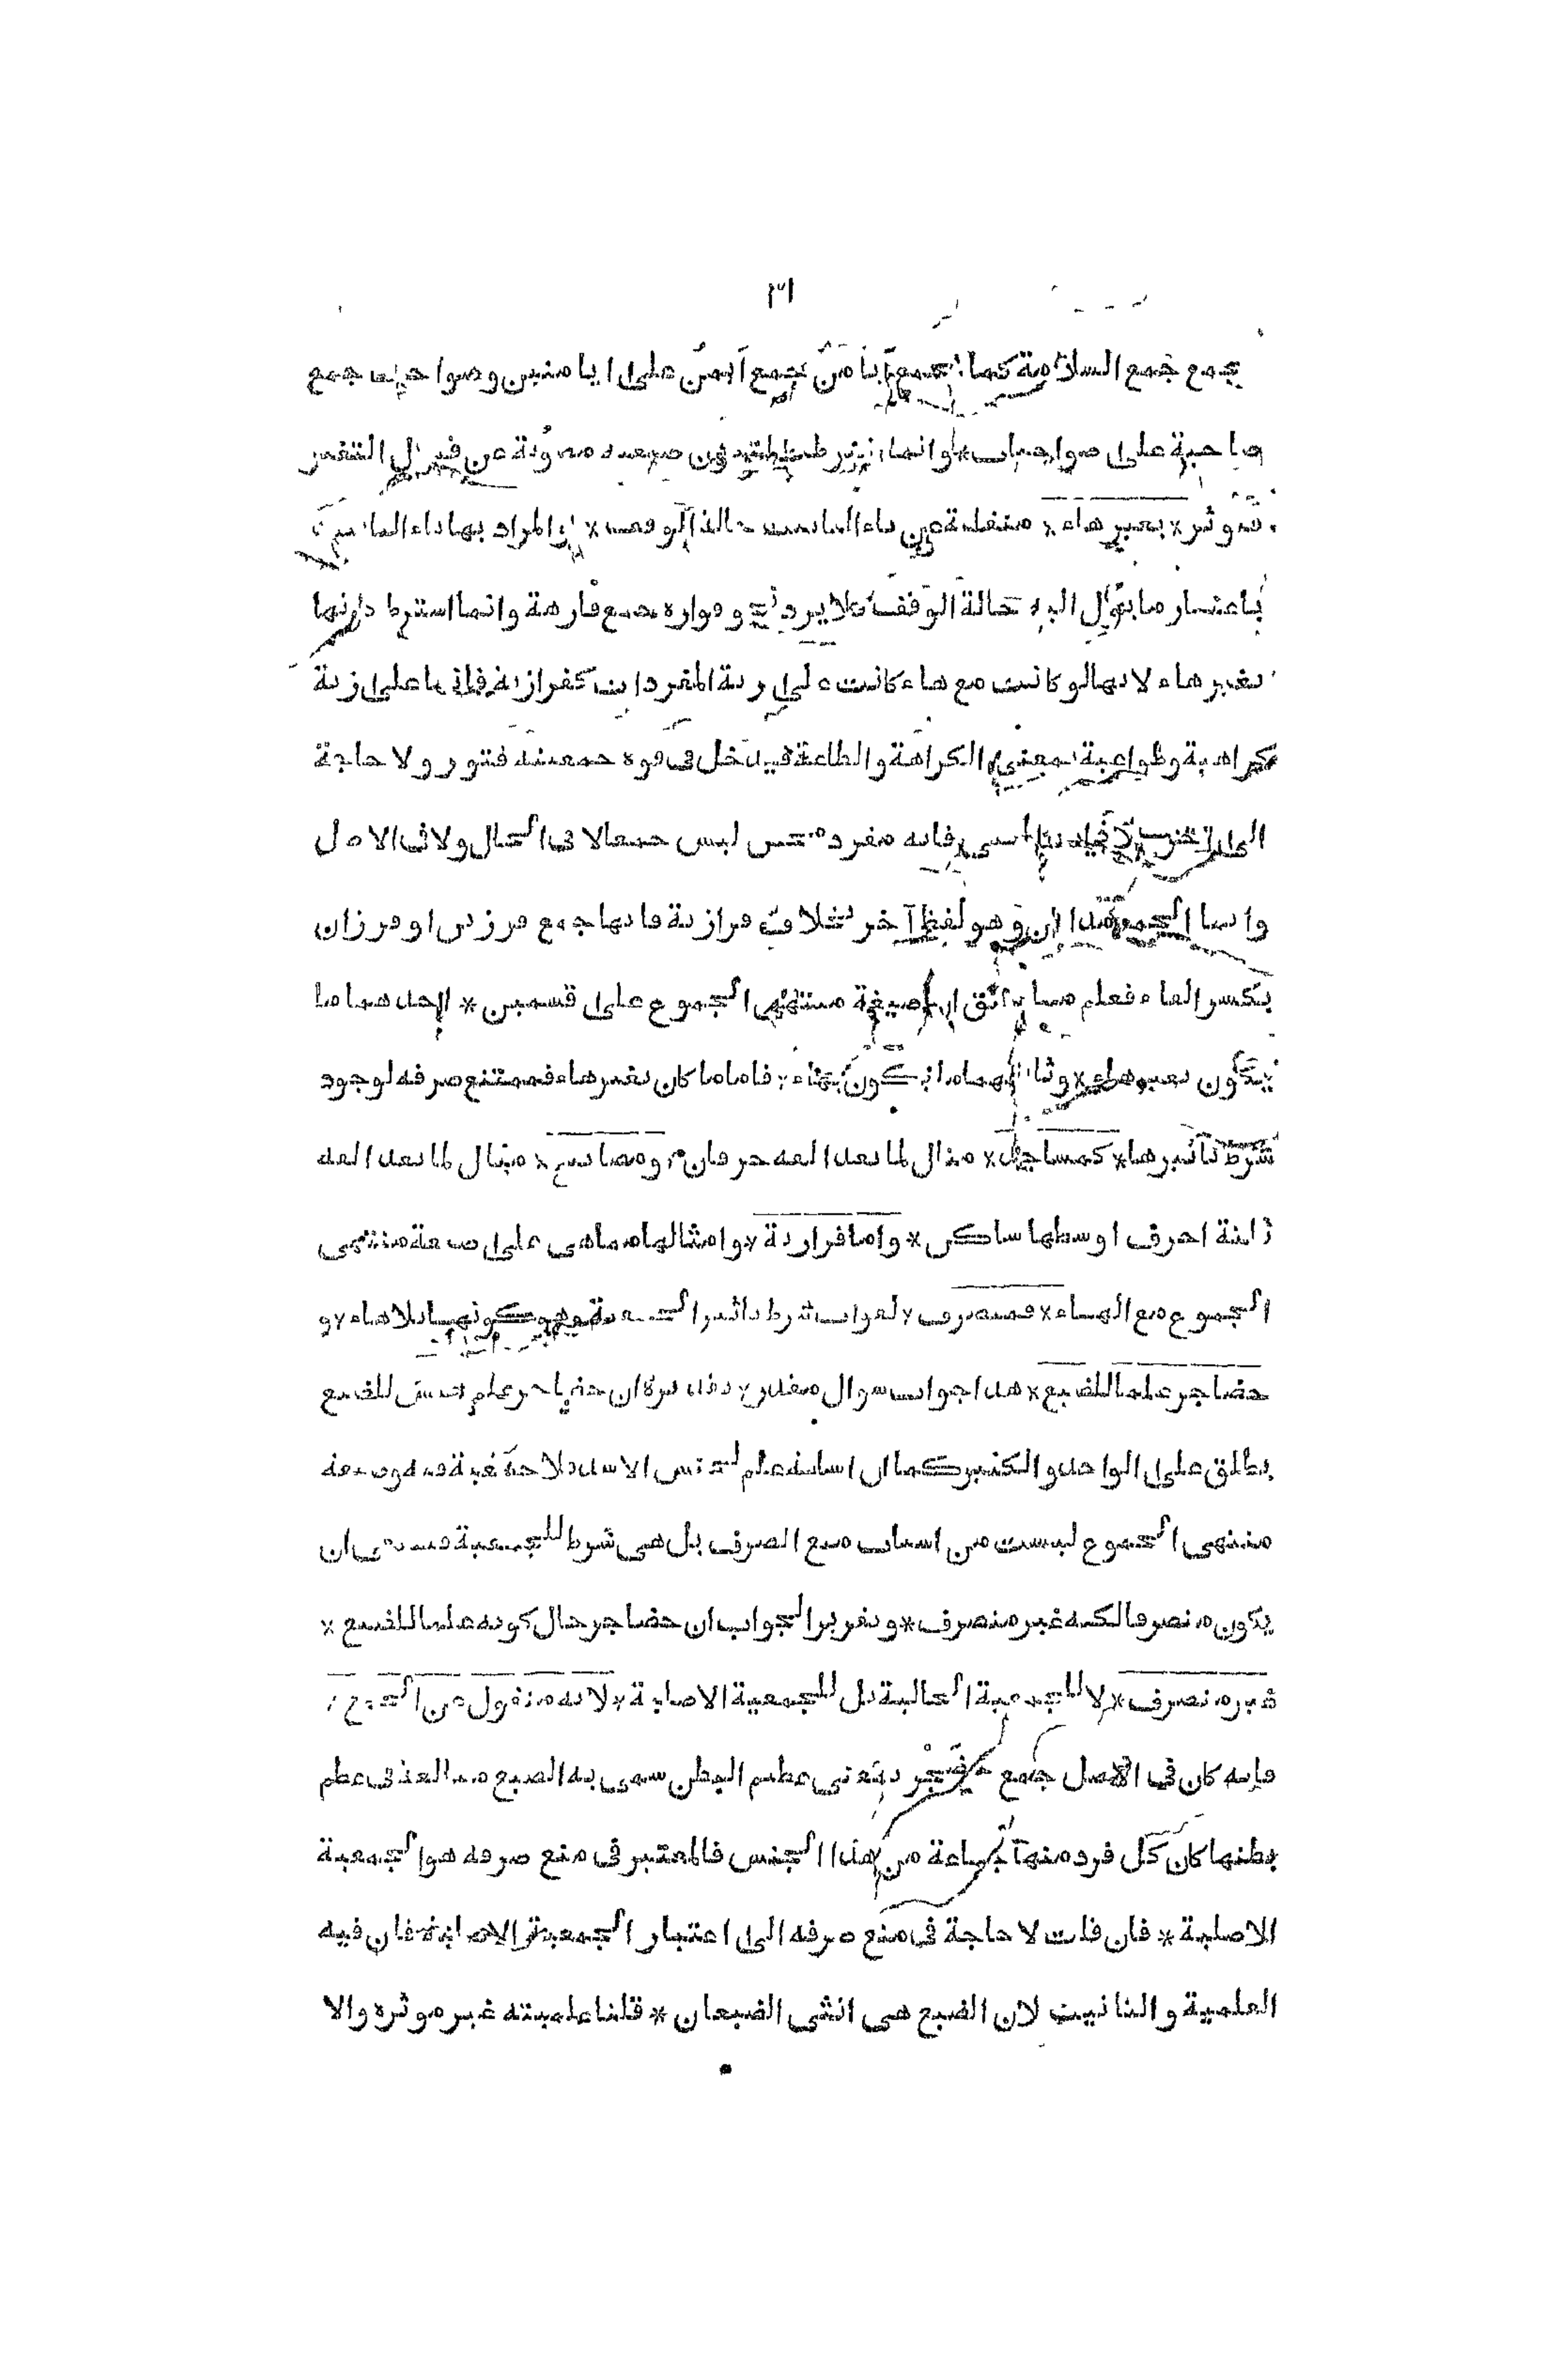 ٣١
يجمع جمع السلامة كما يجمع ايامن جمع ايمن على ايامنين وصواحب جمع
صاحبة على صواحبات * وانما اشترط لتكون صيغته مصونة عن قبول التغير
فتوثر * بغير هاء * منقلبة عن تاء التانيث حالة الوقف * او المراد بها تاء التانيث
باعتبار ما يؤل اليه حالة الوقف فلا يرد نحو فواره جمع فارهة وانما اشترط كونها
بغير هاء لانها لو كانت مع هاء كانت على زنة المفردات كفرازنة فانها على زنة
كراهية وطواعية بمعنى الكراهة والطاعة فيدخل فى قوة جمعيته فتور ولا حاجة
الى اخراج نحو مدايني فانه مفرد محض ليس جمعا لا فى الحال ولا فى الاصل
وانما الجمع مداين وهو لفظ آخر بخلاف فرازنة فانها جمع فرزين او فرزان
بكسر الفاء فعلم مما سبق ان صيغة منتهى الجموع على قسمين * احدهما ما
يكون بغير هاء * وثانيهما ما يكون بهاء * فاما ما كان بغير هاء فممتنع صرفه لوجود
شرط تاثيرها * كمساجد * مثال لما بعد الفه حرفان * ومصابيح * مثال لما بعد الفه
ثلثة احرف اوسطها ساكن * واما فرازنة * وامثالها مما هى على صيغة منتهى
الجموع مع الهاء * فمنصرف * لفوات شرط تاثير الجمعية وهو كونها بلا هاء * و
حضاجر علما للضبع * هذا جواب سوال مقدر * تقديره ان حضاجر علم جنس للضبع
يطلق على الواحد والكثير كما ان اسامة علم لجنس الاسد فلا جمعية فيه وصيغة
منتهى الجموع ليست من اسباب منع الصرف بل هى شرط للجمعية فينبغى ان
يكون منصرفا لكنه غير منصرف * وتقرير الجواب ان حضاجر حال كونه علما للضبع *
غير منصرف * لا للجمعية الحالية بل للجمعية الاصلية * لانه منقول عن الجمع *
فانه كان فى الاصل جمع حضجر بمعنى عظيم البطن سمى به الضبع مبالغة فى عظم
بطنها كان كل فرد منها جماعة من هذا الجنس فالمعتبر فى منع صرفه هو الجمعية
الاصلية * فان قلت لا حاجة فى منع صرفه الى اعتبار الجمعية الاصلية فان فيه
العلمية والتانيث لان الضبع هى انثى الضبعان * قلنا علميته غير موثره والا